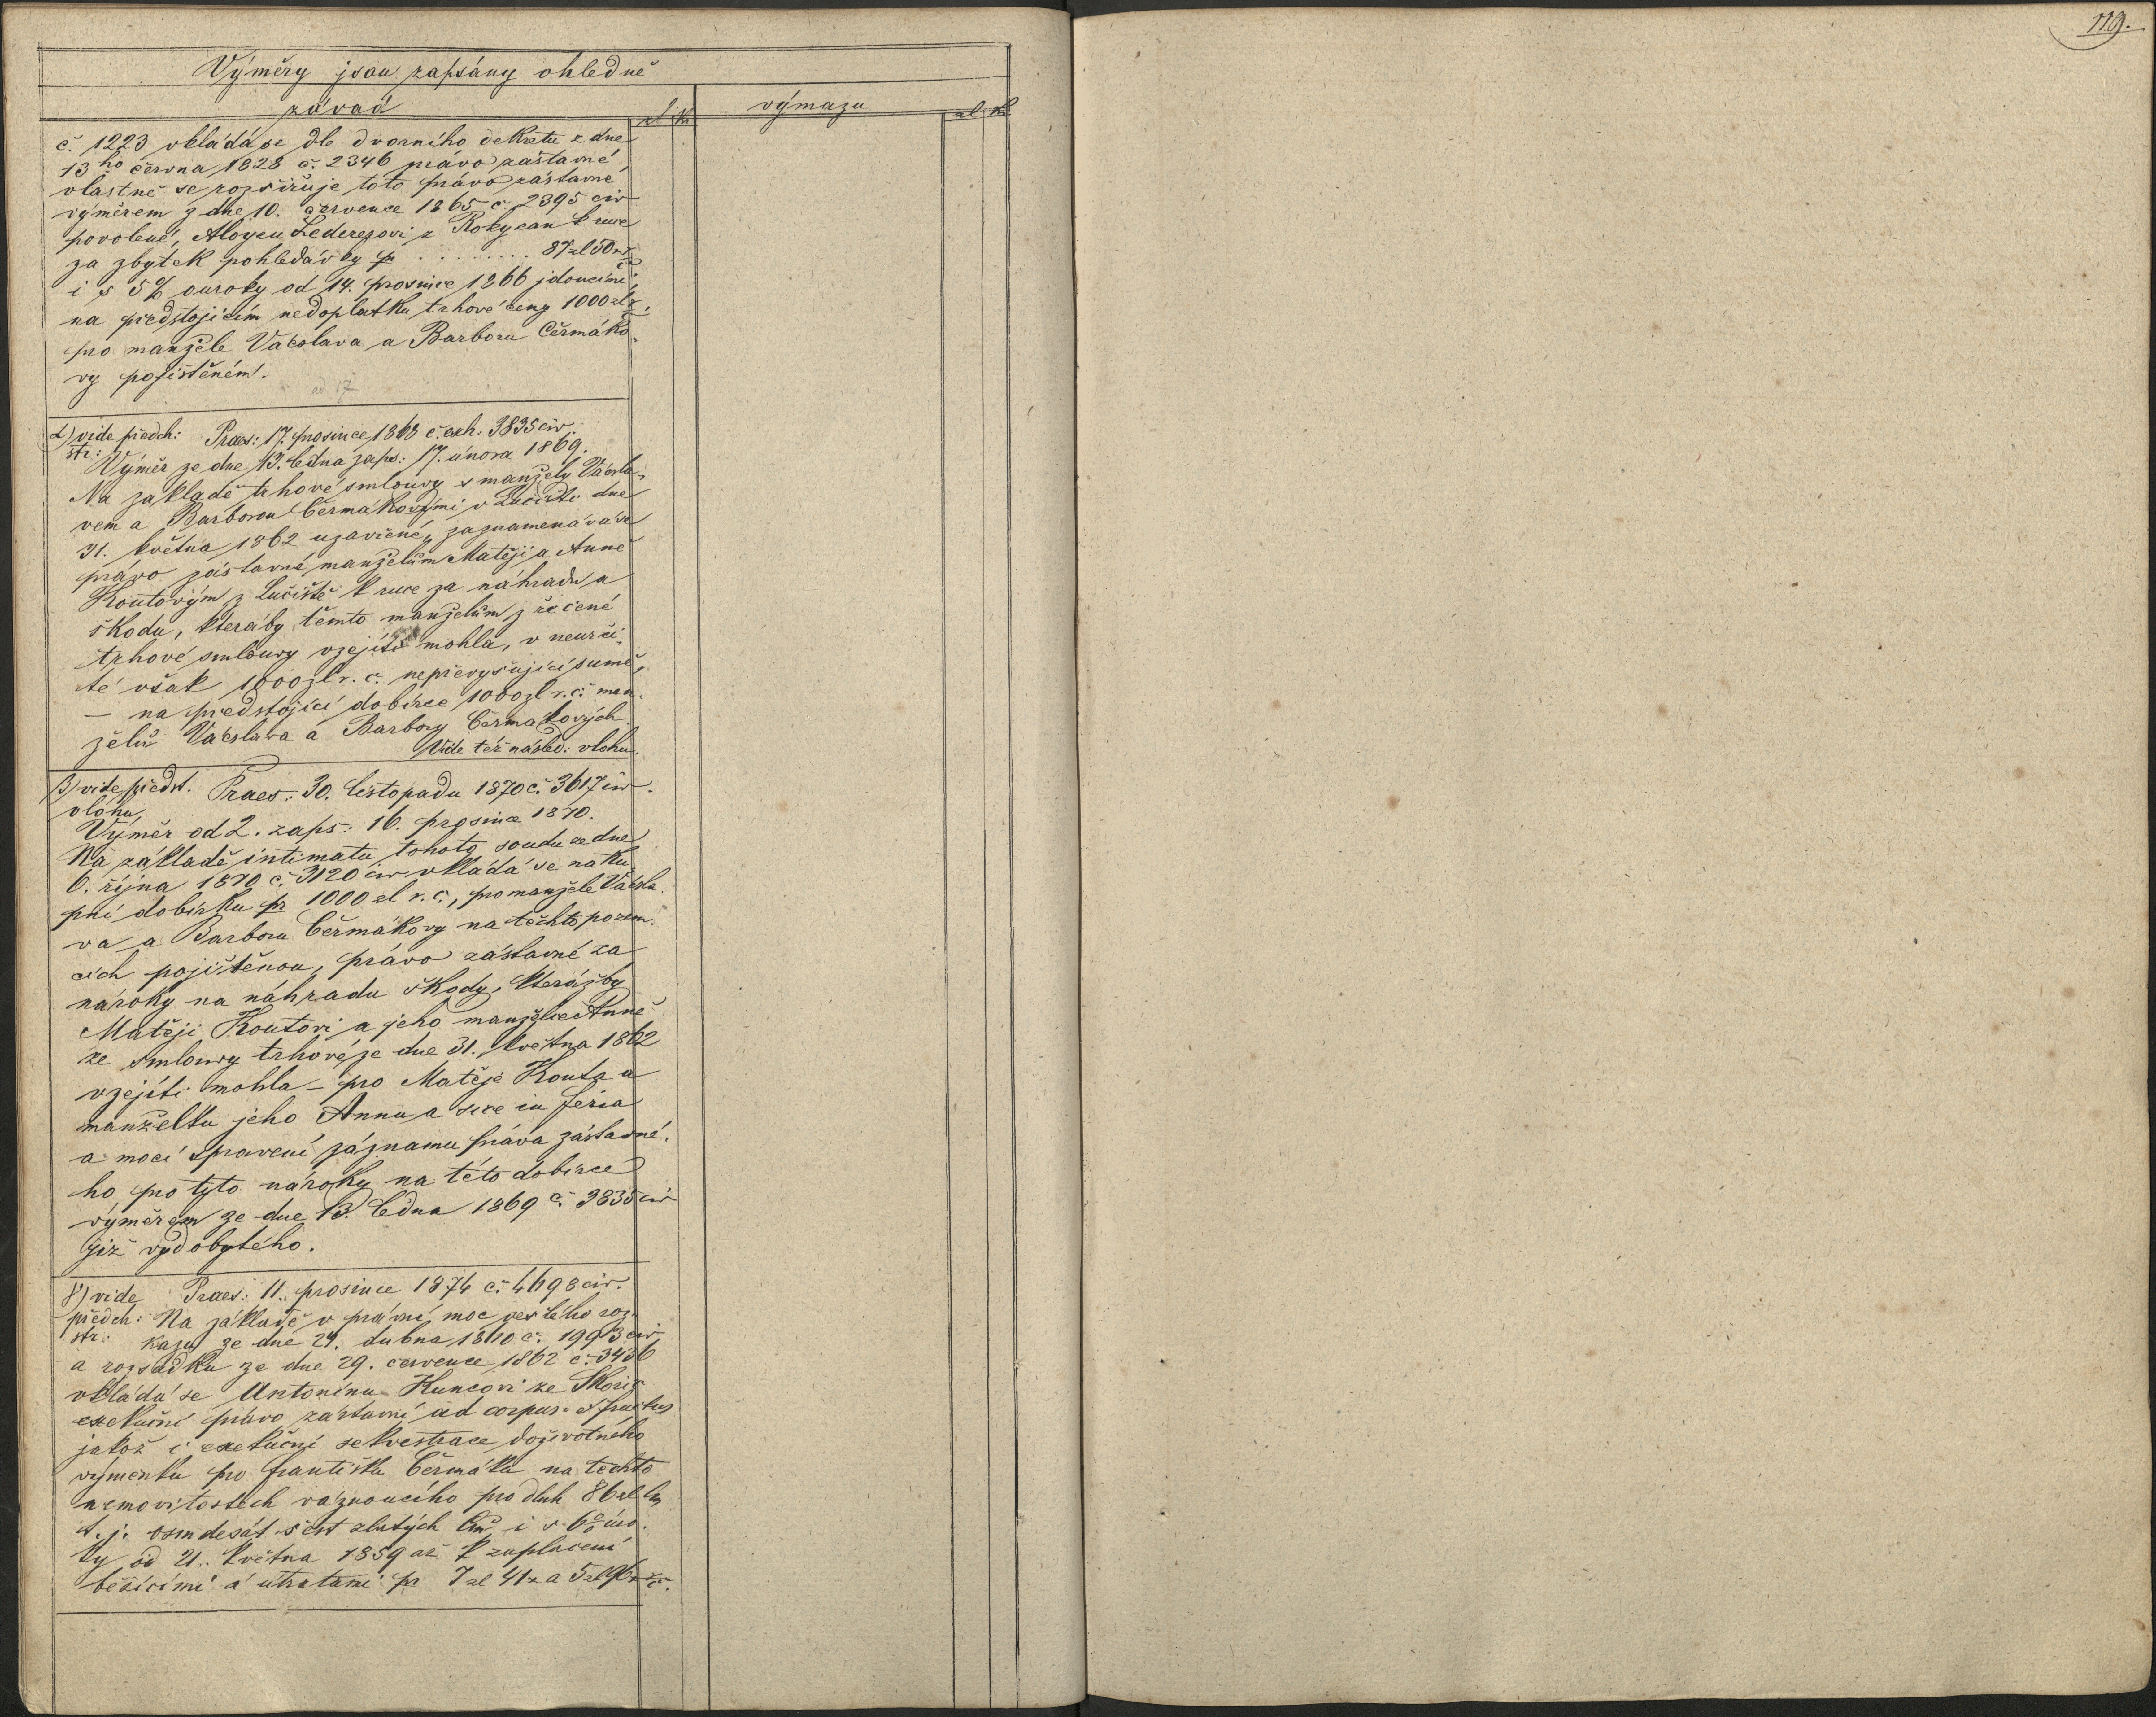 119.
Výměry jsou zapsány ohledně
závad
zl kr
výmazu
zl kr
č. 1223 vkládá se dle dvorního dekretu z dne
13ho června 1828 č. 2346 právo zástavné
vlastně se rozšiřuje toto právo zástavné
výměrem z dne 10. července 1865 č. 2395 civ
povolené, Aloysu Ledererovi z Rokycan k ruce
za zbytek pohledávky pr ........ 87 zl 50 kr
i s 5% ouroky od 14. prosince 1866 jdoucími
na předstojícím nedoplatku trhové ceny 1000 zl
pro manžele Václava a Barboru Čermáko-
vy pojištěném.
ad 17
α) vide předch: Praes: 17. prosince 1868 č. exh. 3835 civ.
str: Výměr ze dne 13. ledna zaps: 17. února 1869.
Na základě trhové smlouvy s manžely Václa-
vem a Barborou Čermákovými v Lučišti dne
31. května 1862 uzavřené, zaznamenává se
právo zástavné manželům Matěji a Anně
Koutovým z Lučiště k ruce za náhradu a
škodu, kteráby těmto manželům z řečené
trhové smlouvy vzejíti mohla, v neurči-
té však 1000 zl r. č. nepřevyšující sumě,
– na předstojící dobírce 1000 zl r. č. man-
želů Václava a Barbory Čermákových.
Vide též násled: vlohu.
β) vide předst. Praes: 30. listopadu 1870 č. 3617 civ.
vlohu,
Výměr od 2. zaps: 16. prosince 1870.
Na základě intimatu tohoto soudu ze dne
6. října 1870 č. 3120 civ vkládá se na ku-
pní dobírku pr 1000 zl r. č., pro manžele Václa-
va a Barboru Čermákovy na těchto pozem-
cích pojištěnou, právo zástavné za
nároky na náhradu škody, kterážby
Matěji Koutovi a jeho manželce Anně
ze smlouvy trhové ze dne 31. května 1862
vzejíti mohla – pro Matěje Kouta a
manželku jeho Annu a sice in
a mocí spravení záznamu práva zástavné-
ho pro tyto nároky na této dobírce
výměrem ze dne 13. ledna 1869 č. 3835 civ
již vydobytého.
γ) vide Praes: 11. prosince 1874 č. 4698 civ.
předch: Na základě v právní moc vešlého roz-
str: kazu ze dne 24. dubna 1860 č. 1993 civ
a rozsudku ze dne 29. července 1862 č. 3436
vkládá se Antonínu Kuncovi ze
exekuční právo zástavní ad corpus et fructus
jakož i exekuční sekvestrace doživotného
výmenku pro Františku Čermáka na těchto
nemovitostech váznoucího pro dluh 86 zl
t. j. osmdesát šest zlatých i s 6% úro-
ky od 21. května 1859 až k zaplacení
běžícími a útratami pr 7 zl 41 kr a 5 zl 96 kr